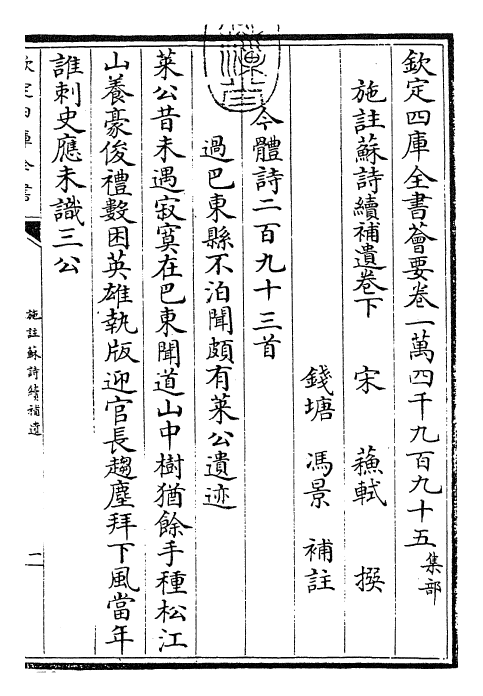 欽定四庫全書薈要卷一萬四千九百九十五 集部
施註蘇詩續補遺卷下
宋 蘓軾 撰
錢塘 馮景 補註
今體詩二百九十三首
過巴東縣不泊聞頗有萊公遺迹
萊公昔未遇寂寞在巴東聞道山中樹猶餘手種松江
山養豪俊禮數困英雄執版迎官長趨塵拜下風當年
誰刺史應未識三公
欽定四庫全書
施註蘇詩續補遺